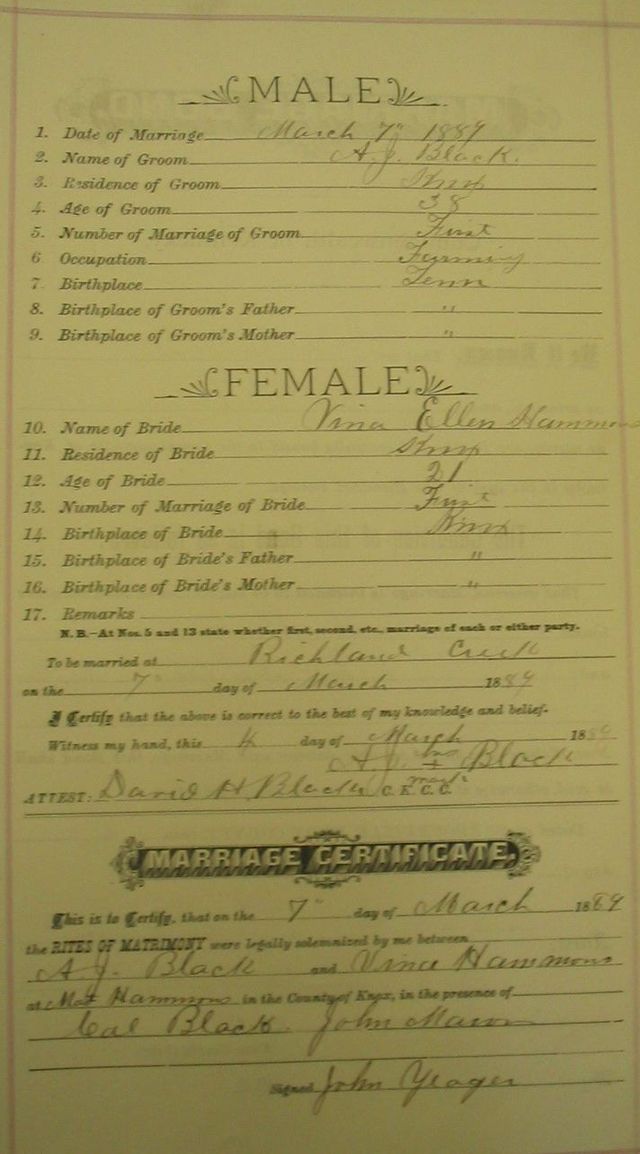 MALE
1. Date of Marriage March 7" 1889
2. Name of Groom A. J. Black.
3. Residence of Groom Knox
4. Age of Groom 38
5. Number of Marriage of Groom First
6. Occupation Farming
7. Birthplace Tenn
8. Birthplace of Groom's Father "
9. Birthplace of Groom's Mother "
FEMALE
10. Name of Bride Vina Ellen Hammons
11. Residence of Bride Knox
12. Age of Bride 21
13. Number of Marriage of Bride First
14. Birthplace of Bride Knox
15. Birthplace of Bride's Father "
16. Birthplace of Bride's Mother "
17. Remarks
N. B.—At Nos. 5 and 13 state whether first, second, etc., marriage of each or either party.
To be married at Richland Creek
on the 7" day of March 1889
I Certify that the above is correct to the best of my knowledge and belief.
Witness my hand, this 4 day of March 1889
A. J. his + Black
mark
ATTEST: David H Black C. K. C. C.
MARRIAGE CERTIFICATE.
This is to Certify, that on the 7" day of March 1889
the RITES OF MATRIMONY were legally solemnized by me between
A J. Black and Vina Hammons
at Mat Hammons in the County of Knox, in the presence of
Cal Black John Mason
Signed John Yeager